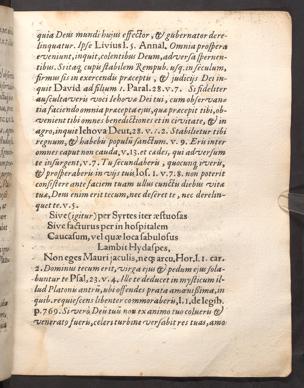 quia Deus mundi hujus effector, & gubernator dere-
linquatur. Ipse Livius l. 5. Annal. Omnia prospera
eveniunt, inquit, colentibus Deum, adversa spernen-
tibus. Si itaq; cupis stabilem Rempub. usq; in seculum,
firmus sis in exercendis præceptis, & judicijs Dei in-
quit David ad filium 1. Paral. 28. v. 7. Si fideliter
auscultaveris voci Iehova Dei tui, cum observan-
tia faciendo omnia præcepta ejus, quæ præcepit tibi, ob-
venient tibi omnes benedictiones et in civitate, & in
agro, inquit Iehova Deut. 28. v. 1. 2. Stabilietur tibi
regnum, & habebis populũ sanctum. v. 9. Eris inter
omnes caput non cauda, v. 13. et cades, qui adversum
te insurgent, v. 7. Tu secundaberis, quocunq; iveris,
& prosperaberis in vijs tuis Ios. 1. v. 7. 8. non poterit
consistere ante faciem tuam ullus cunctis diebus vitæ
tuæ, Deus enim erit tecum, nec deseret te, nec derelin-
quet te v. 5.
Sive (igitur) per Syrtes iter æstuosas
Sive facturus per inhospitalem
Caucasum, vel quæ loca fabulosus
Lambit Hydaspes,
Non eges Mauri jaculis, neq; arcu, Hor. l. 1. car.
2. Dominus tecum erit, virga ejus & pedum ejus sola-
buntur te Psal. 23. v. 4. Ille te deducet in mysticum il-
lud Platonis antrũ, ubi offendes prata amœnissima, in
quib. requiescens libenter commoraberis, l. 1. de legib.
p. 769. Si verò Deũ tuũ non ex animo tuo colueris &
venerato fueris, celeri turbine versabit res tuas, amo